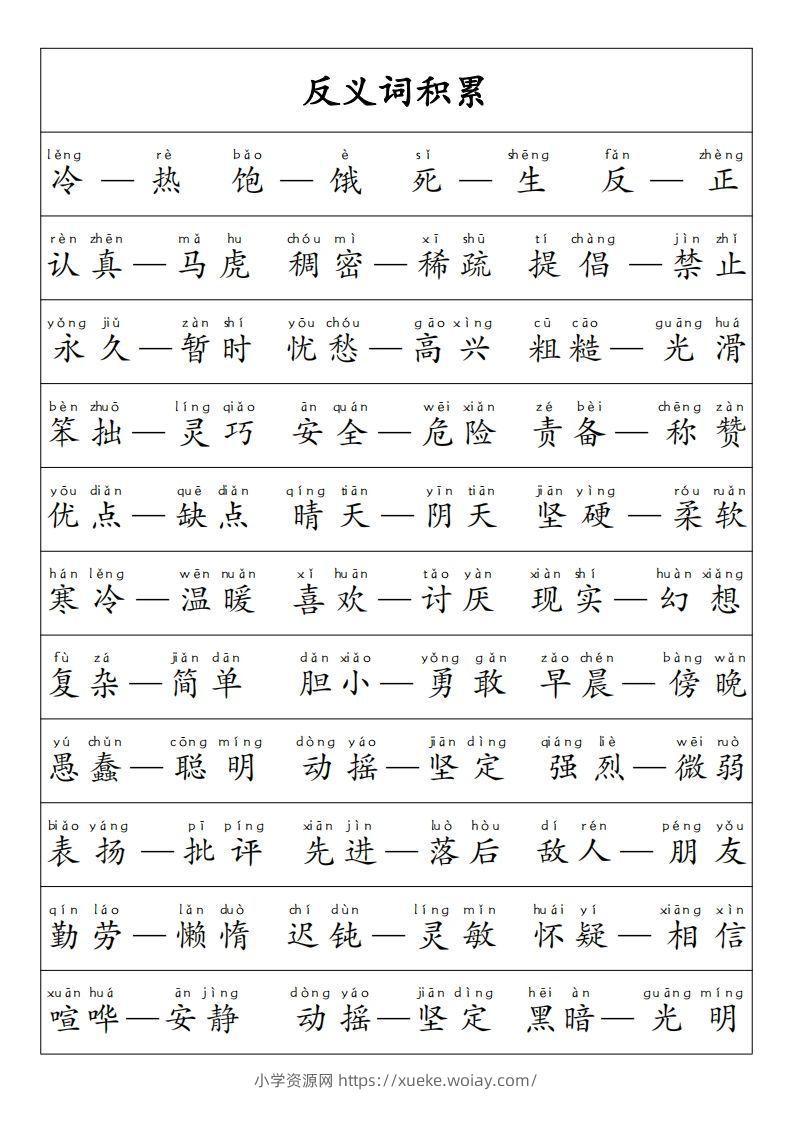 反义词积累
lěng rè bǎo è sǐ shēng fǎn zhèng
冷 — 热 饱 — 饿 死 — 生 反 — 正
rèn zhēn mǎ hu chóu mì xī shū tí chàng jìn zhǐ
认真 — 马虎 稠密 — 稀疏 提倡 — 禁止
yǒng jiǔ zàn shí yōu chóu gāo xìng cū cāo guāng huá
永久 — 暂时 忧愁 — 高兴 粗糙 — 光滑
bèn zhuō líng qiǎo ān quán wēi xiǎn zé bèi chēng zàn
笨拙 — 灵巧 安全 — 危险 责备 — 称赞
yōu diǎn quē diǎn qíng tiān yīn tiān jiān yìng róu ruǎn
优点 — 缺点 晴天 — 阴天 坚硬 — 柔软
hán lěng wēn nuǎn xǐ huān tǎo yàn xiàn shí huàn xiǎng
寒冷 — 温暖 喜欢 — 讨厌 现实 — 幻想
fù zá jiǎn dān dǎn xiǎo yǒng gǎn zǎo chén bàng wǎn
复杂 — 简单 胆小 — 勇敢 早晨 — 傍晚
yú chǔn cōng míng dòng yáo jiān dìng qiáng liè wēi ruò
愚蠢 — 聪明 动摇 — 坚定 强烈 — 微弱
biǎo yáng pī píng xiān jìn luò hòu dí rén péng yǒu
表扬 — 批评 先进 — 落后 敌人 — 朋友
qín láo lǎn duò chí dùn líng mǐn huái yí xiāng xìn
勤劳 — 懒惰 迟钝 — 灵敏 怀疑 — 相信
xuān huá ān jìng dòng yáo jiān dìng hēi àn guāng míng
喧哗 — 安静 动摇 — 坚定 黑暗 — 光明
小学资源网 https://xueke.woiay.com/